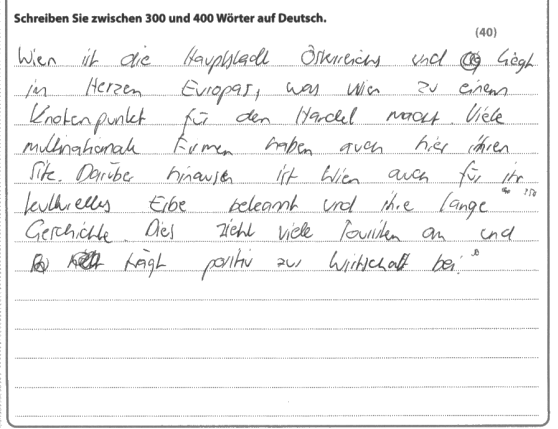 Schreiben Sie zwischen 300 und 400 Wörter auf Deutsch.
(40)
Wien ist die Hauptstadt Österreichs und liegt
im Herzen Europas, was Wien zu einem
Knotenpunkt für den Handel macht. Viele
multinationale Firmen haben auch hier ihren
Sitz. Darüber hinaus ist Wien auch für ihr
kulturelles Erbe bekannt und ihre lange
Geschichte. Dies zieht viele Touristen an und
trägt positiv zur Wirtschaft bei.